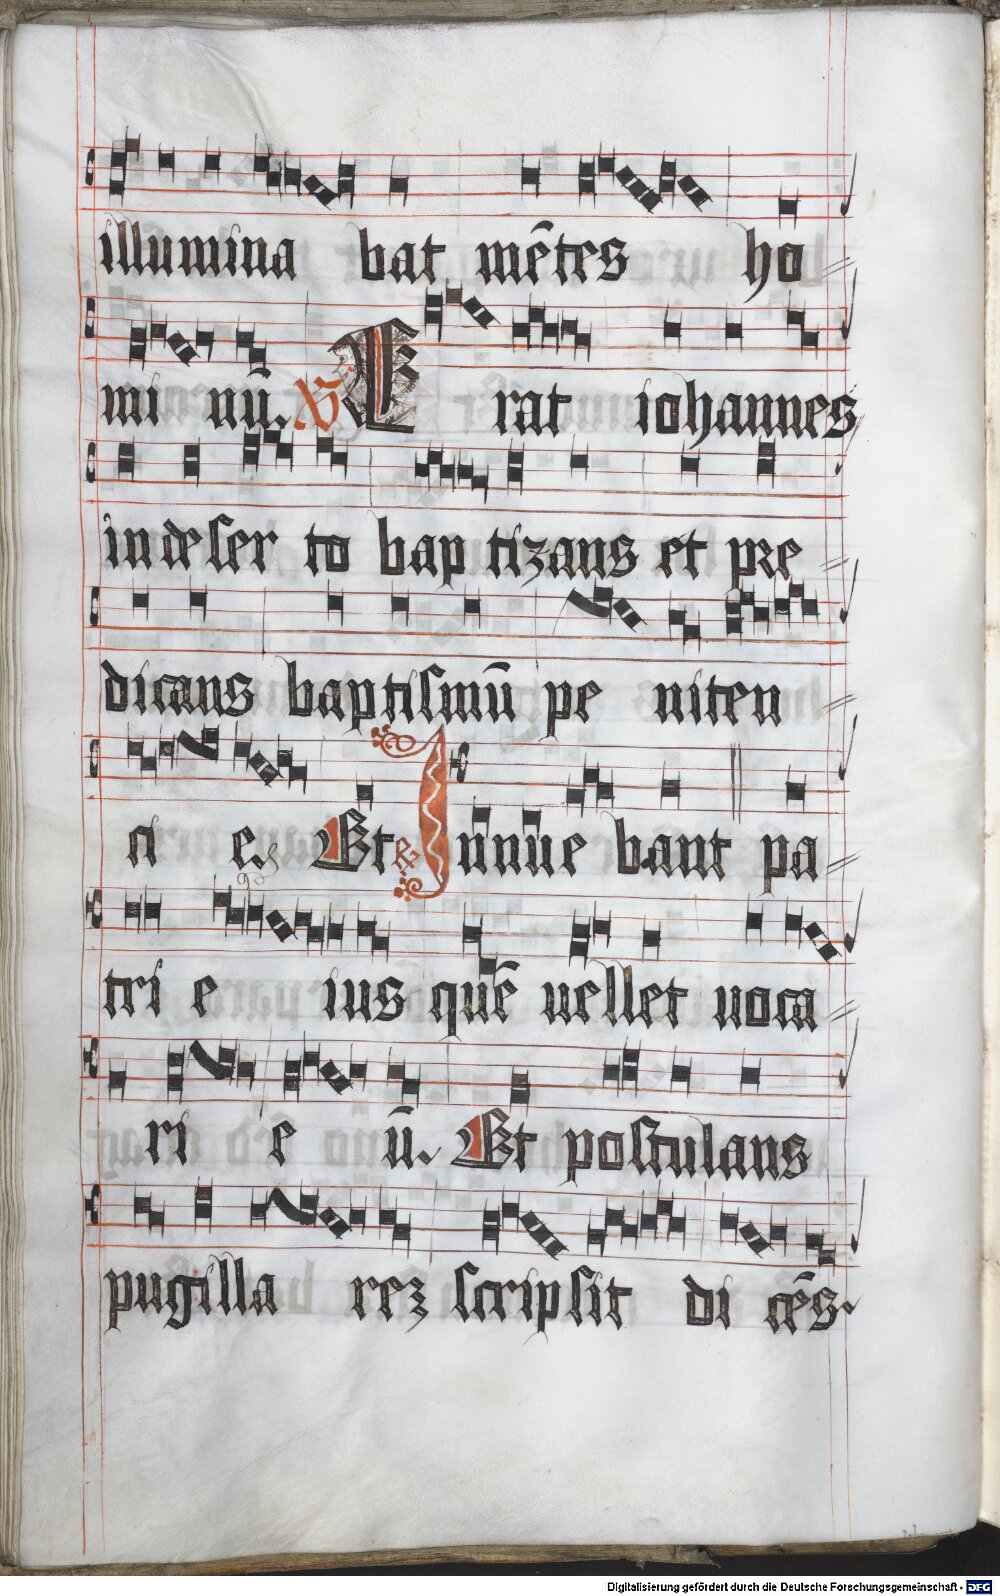 illumina bat mētes ho
mi nū. V Erat iohannes
in deser to bap tizans et pre
dicans baptismū pe niten
ci e Et e Innue bant pa
tri e ius quē uellet uoca
ri e ū. Et postulans
pugilla rez scripsit di cēs.
Digitalisierung gefördert durch die Deutsche Forschungsgemeinschaft - DFG